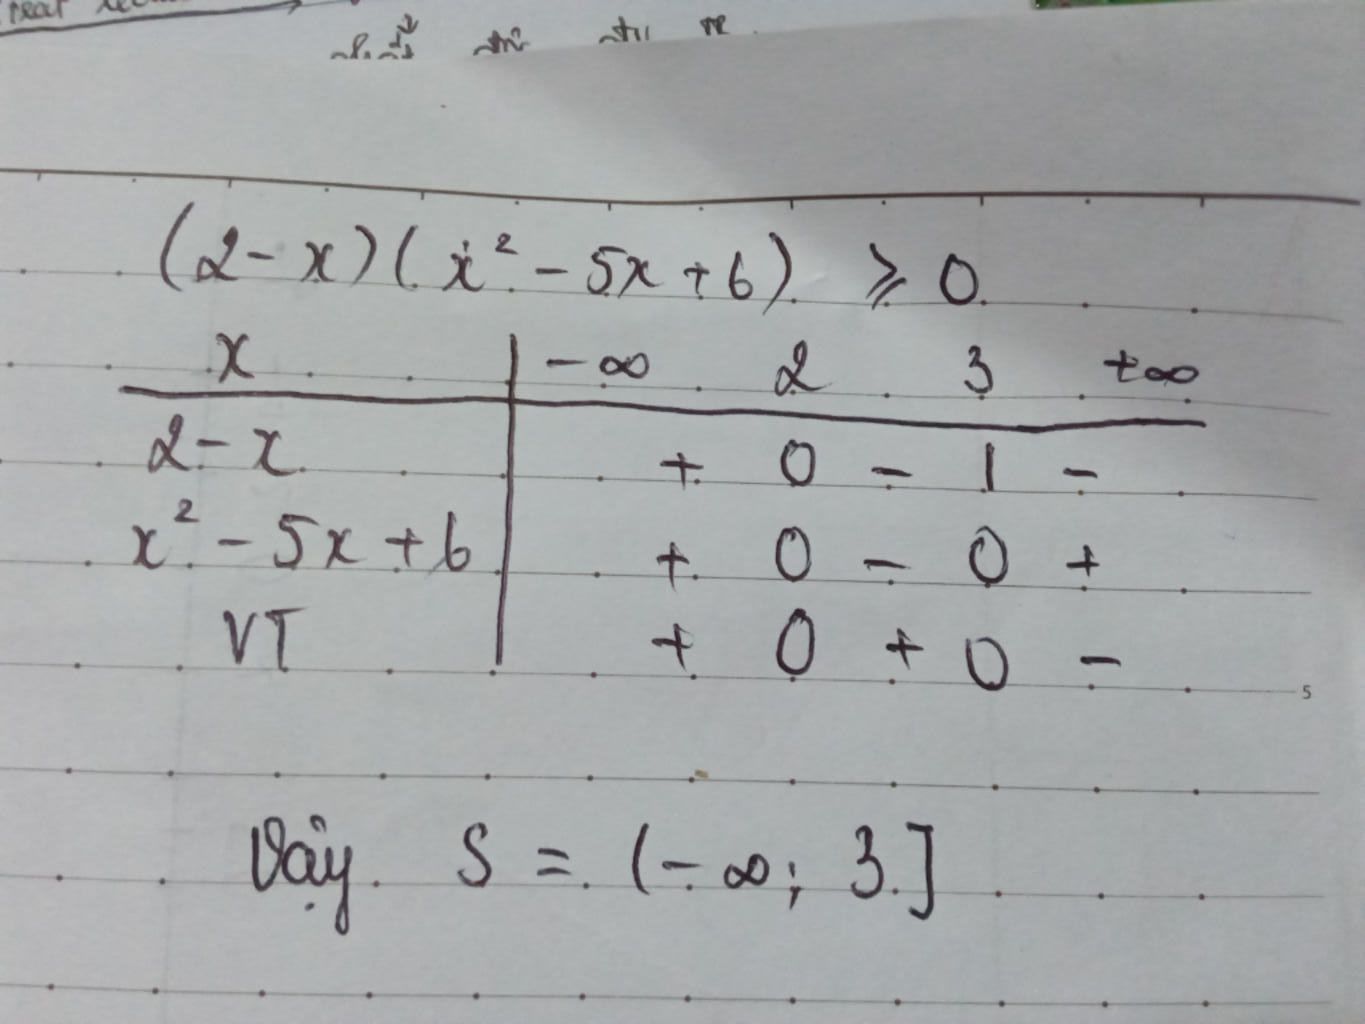 (2-x)(x² - 5x + 6) ⩾ 0
x | -∞ 2 3 +∞
2-x | + 0 - | -
x² - 5x + 6 | + 0 - 0 +
VT | + 0 + 0 -
5
Vậy S = (-∞; 3]